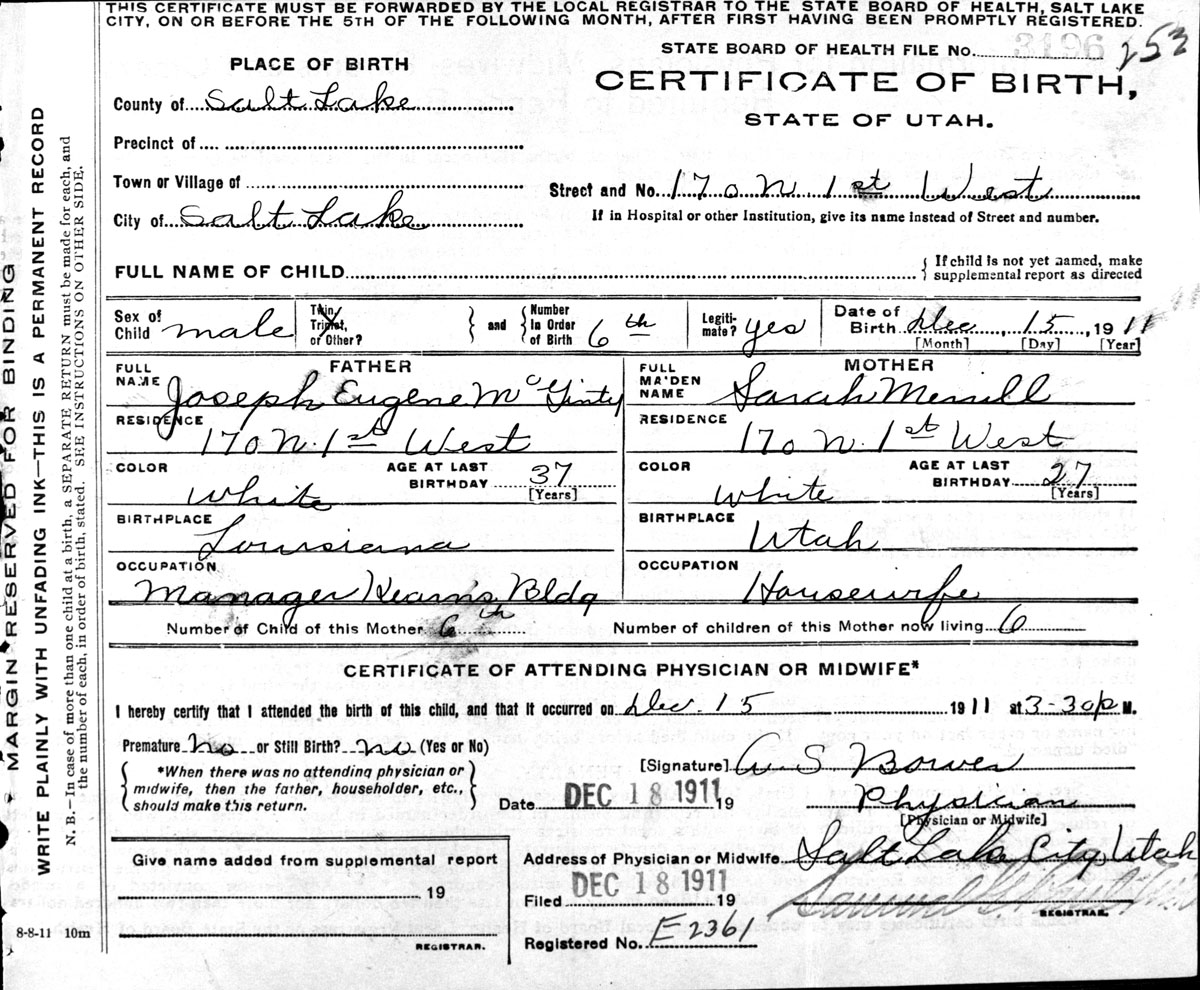 THIS CERTIFICATE MUST BE FORWARDED BY THE LOCAL REGISTRAR TO THE STATE BOARD OF HEALTH, SALT LAKE
CITY, ON OR BEFORE THE 5TH OF THE FOLLOWING MONTH, AFTER FIRST HAVING BEEN PROMPTLY REGISTERED.
STATE BOARD OF HEALTH FILE No. 3196 253
PLACE OF BIRTH
CERTIFICATE OF BIRTH,
STATE OF UTAH.
County of Salt Lake
Precinct of
Town or Village of
Street and No. 170 N 1st West
City of Salt Lake
If in Hospital or other Institution, give its name instead of Street and number.
FULL NAME OF CHILD
If child is not yet named, make
supplemental report as directed
Sex of
Child male
Twin,
Triplet,
or Other?
and
Number
In Order
of Birth 6th
Legiti-
mate? yes
Date of
Birth Dec, 15, 1911
[Month] [Day] [Year]
FATHER
FULL
NAME Joseph Eugene McGinty
RESIDENCE
170 N. 1st West
COLOR
White
AGE AT LAST
BIRTHDAY 37
[Years]
BIRTHPLACE
Louisiana
OCCUPATION
Manager Kearns Bldg
MOTHER
FULL
MAIDEN
NAME Sarah Merrill
RESIDENCE
170 N. 1st West
COLOR
White
AGE AT LAST
BIRTHDAY 27
[Years]
BIRTHPLACE
Utah
OCCUPATION
Housewife
Number of Child of this Mother 6th
Number of children of this Mother now living 6
CERTIFICATE OF ATTENDING PHYSICIAN OR MIDWIFE*
I hereby certify that I attended the birth of this child, and that it occurred on Dec. 15 1911 at 3-30 p M.
Premature no or Still Birth? no (Yes or No)
*When there was no attending physician or
midwife, then the father, householder, etc.,
should make this return.
[Signature] A. S. Bower
Date DEC 18 1911 19
Physician
[Physician or Midwife]
Give name added from supplemental report
19
REGISTRAR.
Address of Physician or Midwife Salt Lake City, Utah
Filed DEC 18 1911 19
Samuel G. Paul
REGISTRAR.
Registered No. E2361
8-8-11 10m
MARGIN RESERVED FOR BINDING
WRITE PLAINLY WITH UNFADING INK—THIS IS A PERMANENT RECORD
N. B.—In case of more than one child at a birth, a SEPARATE RETURN must be made for each, and
the number of each, in order of birth, stated. SEE INSTRUCTIONS ON OTHER SIDE.